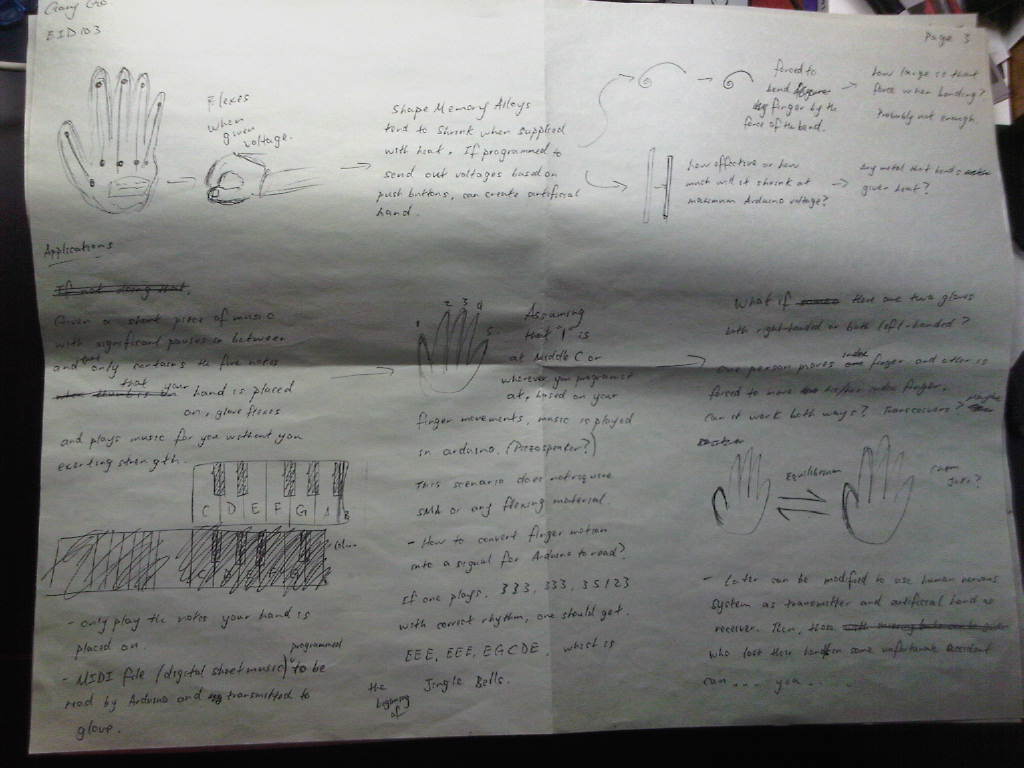 EID 103
Page 3
Flexes
when
given
voltage.
Shape Memory Alloys
tend to shrink when supplied
with heat. If programmed to
send out voltages based on
push buttons, can create artificial
hand.
forced to
bend
finger by the
force of the band.
how large is that
force when bending?
Probably not enough.
how effective or how
much will it shrink at
maximum Arduino voltage?
Any metal that bends
given heat?
Applications
If not doing that,
Given a short piece of music
with significant pauses in between
and that only contains the five notes
that your hand is placed
on, glove flexes
and plays music for you without you
exerting strength.
C D E F G A B
- only play the notes your hand is
placed on.
- MIDI file (digital sheet music) programmed to be
read by Arduino and transmitted to
glove.
1 2 3 4 5
Assuming
that "1" is
at Middle C or
wherever you program it
at, based on your
finger movements, music is played
in arduino. (Piezospeaker?)
This scenario does not require
SMA or any flexing material.
- How to convert finger motion
into a signal for Arduino to read?
If one plays, 333, 333, 35123
with correct rhythm, one should get.
EEE, EEE, EGCDE, which is
the
beginning
of
Jingle Bells.
What if there are two gloves
both right-handed or both left-handed?
One person moves index finger and other is
forced to move finger.
Can it work both ways? Transceivers?
Equilibrium
Chem
Joke?
- Later can be modified to use human nervous
system as transmitter and artificial hand as
receiver. Then, those
who lost their hands in some unfortunate accident
can ... you .....